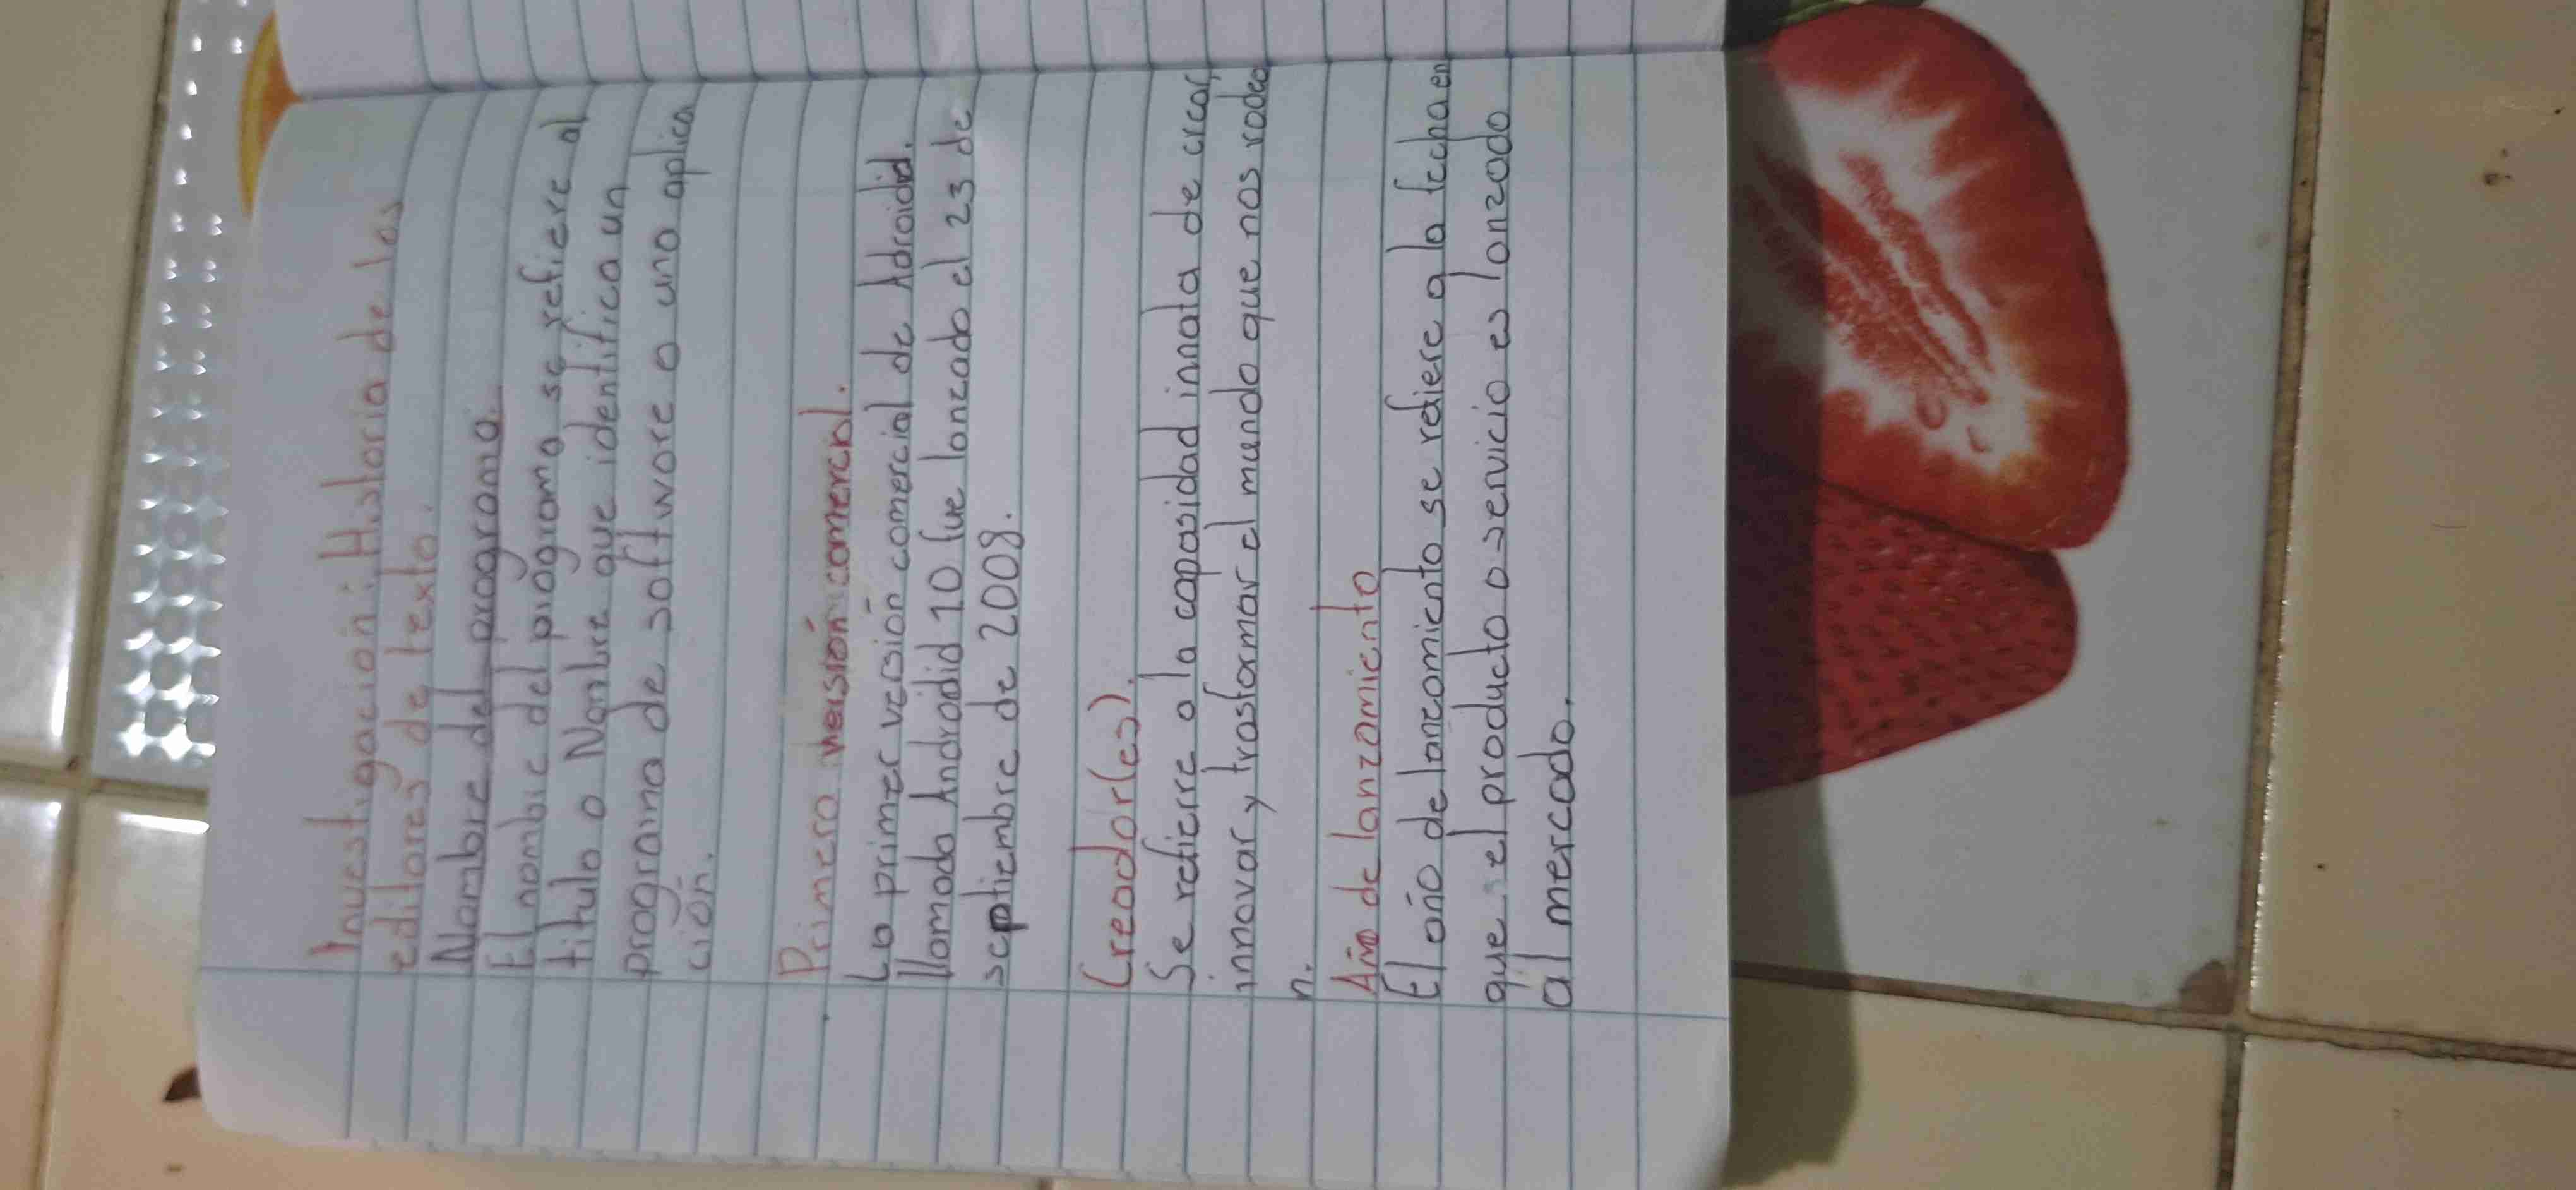 Investigación: Historia de los
editores de texto.
Nombre del programa.
El nombre del programa se refiere al
titulo o Nonbre que identifica un
programa de software o una aplica
ción.
Primera versión comercial.
La primer versión comercial de Adroidid.
llamada Androidid 10 fue lanzada el 23 de
septiembre de 2008.
Creador(es).
Se refierre a la capasidad innata de crear,
innovar y trasformar el mundo que nos rodea
n.
Año de lanzamiento
El año de lanzamiento se refiere a la fecha en
que el producto o servicio es lanzado
al mercado.